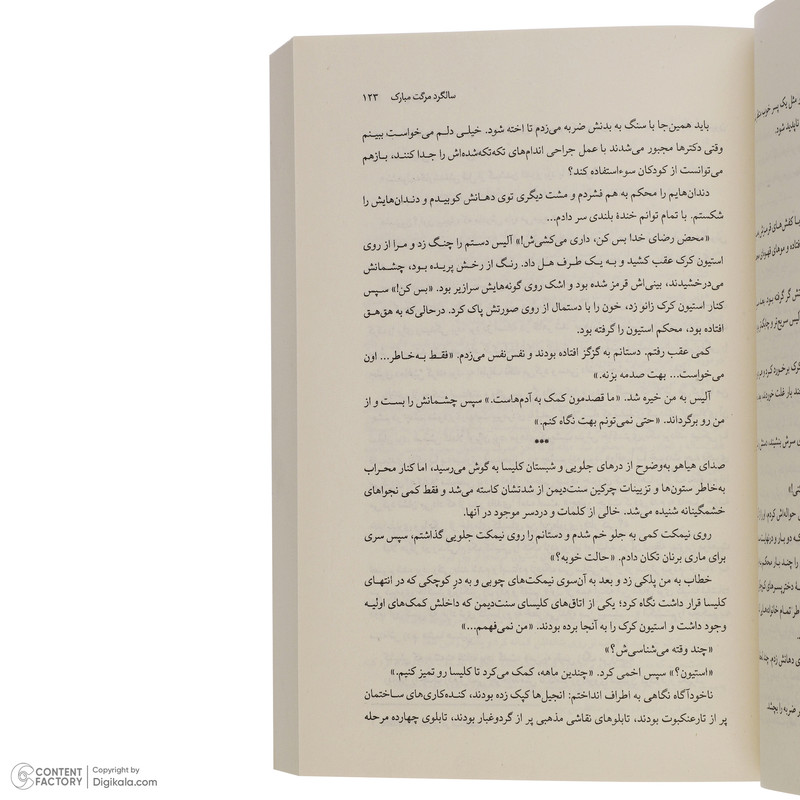 سالگرد مرگت مبارک ۱۲۳
باید همین‌جا با سنگ به بدنش ضربه می‌زدم تا اخته شود. خیلی دلم می‌خواست ببینم
وقتی دکترها مجبور می‌شدند با عمل جراحی اندام‌های تکه‌تکه‌شده‌اش را جدا کنند، بازهم
می‌توانست از کودکان سوءاستفاده کند؟
دندان‌هایم را محکم به هم فشردم و مشت دیگری توی دهانش کوبیدم و دندان‌هایش را
شکستم. با تمام توانم خندهٔ بلندی سر دادم...
«محض رضای خدا بس کن، داری می‌کشی‌ش!» آلیس دستم را چنگ زد و مرا از روی
استیون کرک عقب کشید و به یک طرف هل داد. رنگ از رخش پریده بود، چشمانش
می‌درخشیدند، بینی‌اش قرمز شده بود و اشک روی گونه‌هایش سرازیر بود. «بس کن!» سپس
کنار استیون کرک زانو زد، خون را با دستمال از روی صورتش پاک کرد. درحالی‌که به هق‌هق
افتاده بود، محکم استیون را گرفته بود.
کمی عقب رفتم. دستانم به گزگز افتاده بودند و نفس‌نفس می‌زدم. «فقط به‌خاطر... اون
می‌خواست... بهت صدمه بزنه.»
آلیس به من خیره شد. «ما قصدمون کمک به آدم‌هاست.» سپس چشمانش را بست و از
من رو برگرداند. «حتی نمی‌تونم بهت نگاه کنم.»
***
صدای هیاهو به‌وضوح از درهای جلویی و شبستان کلیسا به گوش می‌رسید، اما کنار محراب
به‌خاطر ستون‌ها و تزیینات چرکین سنت‌دیمن از شدتشان کاسته می‌شد و فقط کمی نجواهای
خشمگینانه شنیده می‌شد. خالی از کلمات و دردسر موجود در آنها.
روی نیمکت کمی به جلو خم شدم و دستانم را روی نیمکت جلویی گذاشتم، سپس سری
برای ماری برنان تکان دادم. «حالت خوبه؟»
خطاب به من پلکی زد و بعد به آن‌سوی نیمکت‌های چوبی و به درِ کوچکی که در انتهای
کلیسا قرار داشت نگاه کرد؛ یکی از اتاق‌های کلیسای سنت‌دیمن که داخلش کمک‌های اولیه
وجود داشت و استیون کرک را به آنجا برده بودند. «من نمی‌فهمم...»
«چند وقته می‌شناسی‌ش؟»
«استیون؟» سپس اخمی کرد. «چندین ماهه، کمک می‌کرد تا کلیسا رو تمیز کنیم.»
ناخودآگاه نگاهی به اطراف انداختم: انجیل‌ها کپک زده بودند، کنده‌کاری‌های ساختمان
پر از تارعنکبوت بودند، تابلوهای نقاشی مذهبی پر از گردوغبار بودند، تابلوی چهارده مرحله
CONTENT FACTORY
Copyright by
Digikala.com